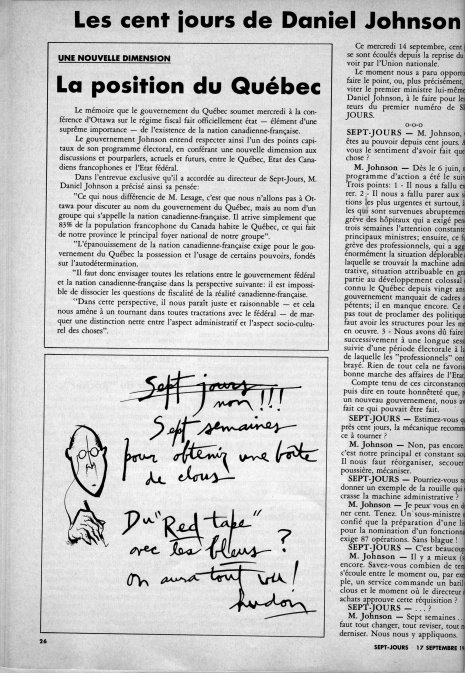 Les cent jours de Daniel Johnson
UNE NOUVELLE DIMENSION
La position du Québec
Le mémoire que le gouvernement du Québec soumet mercredi à la con-
férence d'Ottawa sur le régime fiscal fait officiellement état — élément d'une
suprême importance — de l'existence de la nation canadienne-française.
Le gouvernement Johnson entend respecter ainsi l'un des points capi-
taux de son programme électoral, en conférant une nouvelle dimension aux
discussions et pourparlers, actuels et futurs, entre le Québec, Etat des Cana-
diens francophones et l'Etat fédéral.
Dans l'entrevue exclusive qu'il a accordée au directeur de Sept-Jours, M.
Daniel Johnson a précisé ainsi sa pensée:
"Ce qui nous différencie de M. Lesage, c'est que nous n'allons pas à Ot-
tawa pour discuter au nom du gouvernement du Québec, mais au nom d'un
groupe qui s'appelle la nation canadienne-française. Il arrive simplement que
83% de la population francophone du Canada habite le Québec, ce qui fait
de notre province le principal foyer national de notre groupe".
"L'épanouissement de la nation canadienne-française exige pour le gou-
vernement du Québec la possession et l'usage de certains pouvoirs, fondés
sur l'autodétermination. . .
"Il faut donc envisager toutes les relations entre le gouvernement fédéral
et la nation canadienne-française dans la perspective suivante: il est impossi-
ble de dissocier les questions de fiscalité de la réalité canadienne-française.
"Dans cette perspective, il nous paraît juste et raisonnable — et cela
nous amène à un tournant dans toutes tractations avec le fédéral — de mar-
quer une distinction nette entre l'aspect administratif et l'aspect socio-cultu-
rel des choses".
Sept jours
non !!!
Sept semaines
pour obtenir une boîte
de clous
Du "Red tape"
avec les bleus ?
on aura tout vu !
Hudon
26
Ce mercredi 14 septembre, cent
se sont écoulés depuis la reprise du
voir par l'Union nationale.
Le moment nous a paru opportu
faire le point, ou, plus précisément,
viter le premier ministre lui-même
Daniel Johnson, à le faire pour les
teurs du premier numéro de S
JOURS.
o-o-o
SEPT-JOURS — M. Johnson,
êtes au pouvoir depuis cent jours. A
vous le sentiment d'avoir fait que
chose ?
M. Johnson — Dès le 6 juin,
programme d'action a été le suiv
Trois points: 1 - Il nous a fallu é
rer. 2 - Il nous a fallu parer aux s
tions les plus urgentes et surtout, à
les qui sont survenues abruptement
grève des hôpitaux qui a exigé pen
trois semaines l'attention constante
principaux ministres; ensuite, ce f
grève des professionnels, qui a agg
énormément la situation déplorable
laquelle se trouvait la machine adm
trative, situation attribuable en gra
partie au développement colossal
connu le Québec depuis vingt ans
gouvernement manquait de cadres
pétents; il en manque encore. Ce n
pas tout de proclamer des politique
faut avoir les structures pour les m
en oeuvre. 3 - Nous avons dû faire
successivement à une longue sess
suivie d'une période électorale à la
de laquelle les "professionnels" ont
brayé. Rien de tout cela ne favoris
bonne marche des affaires de l'Etat
Compte tenu de ces circonstance
puis dire en toute honnêteté que, p
un nouveau gouvernement, nous av
fait ce qui pouvait être fait.
SEPT-JOURS — Estimez-vous q
près cent jours, la mécanique recomm
ce à tourner ?
M. Johnson — Non, pas encore
c'est notre principal et constant so
Il nous faut réorganiser, secouer
poussière, mécaniser.
SEPT-JOURS — Pourriez-vous n
donner un exemple de la rouille qui
crasse la machine administrative ?
M. Johnson — Je peux vous en d
ner cent. Tenez. Un sous-ministre
confié que la préparation d'une li
pour la nomination d'un fonctionna
exige 87 opérations. Sans blague !
SEPT-JOURS — C'est beaucoup
M. Johnson — Il y a mieux
encore. Savez-vous combien de ten
s'écoule entre le moment ou, par exe
ple, un service commande un baril
clous et le moment où le directeur
achats approuve cette réquisition ?
SEPT-JOURS — . . . ?
M. Johnson — Sept semaines . .
faut tout changer, tout reviser, tout
derniser. Nous nous y appliquons.
SEPT-JOURS 17 SEPTEMBRE 19